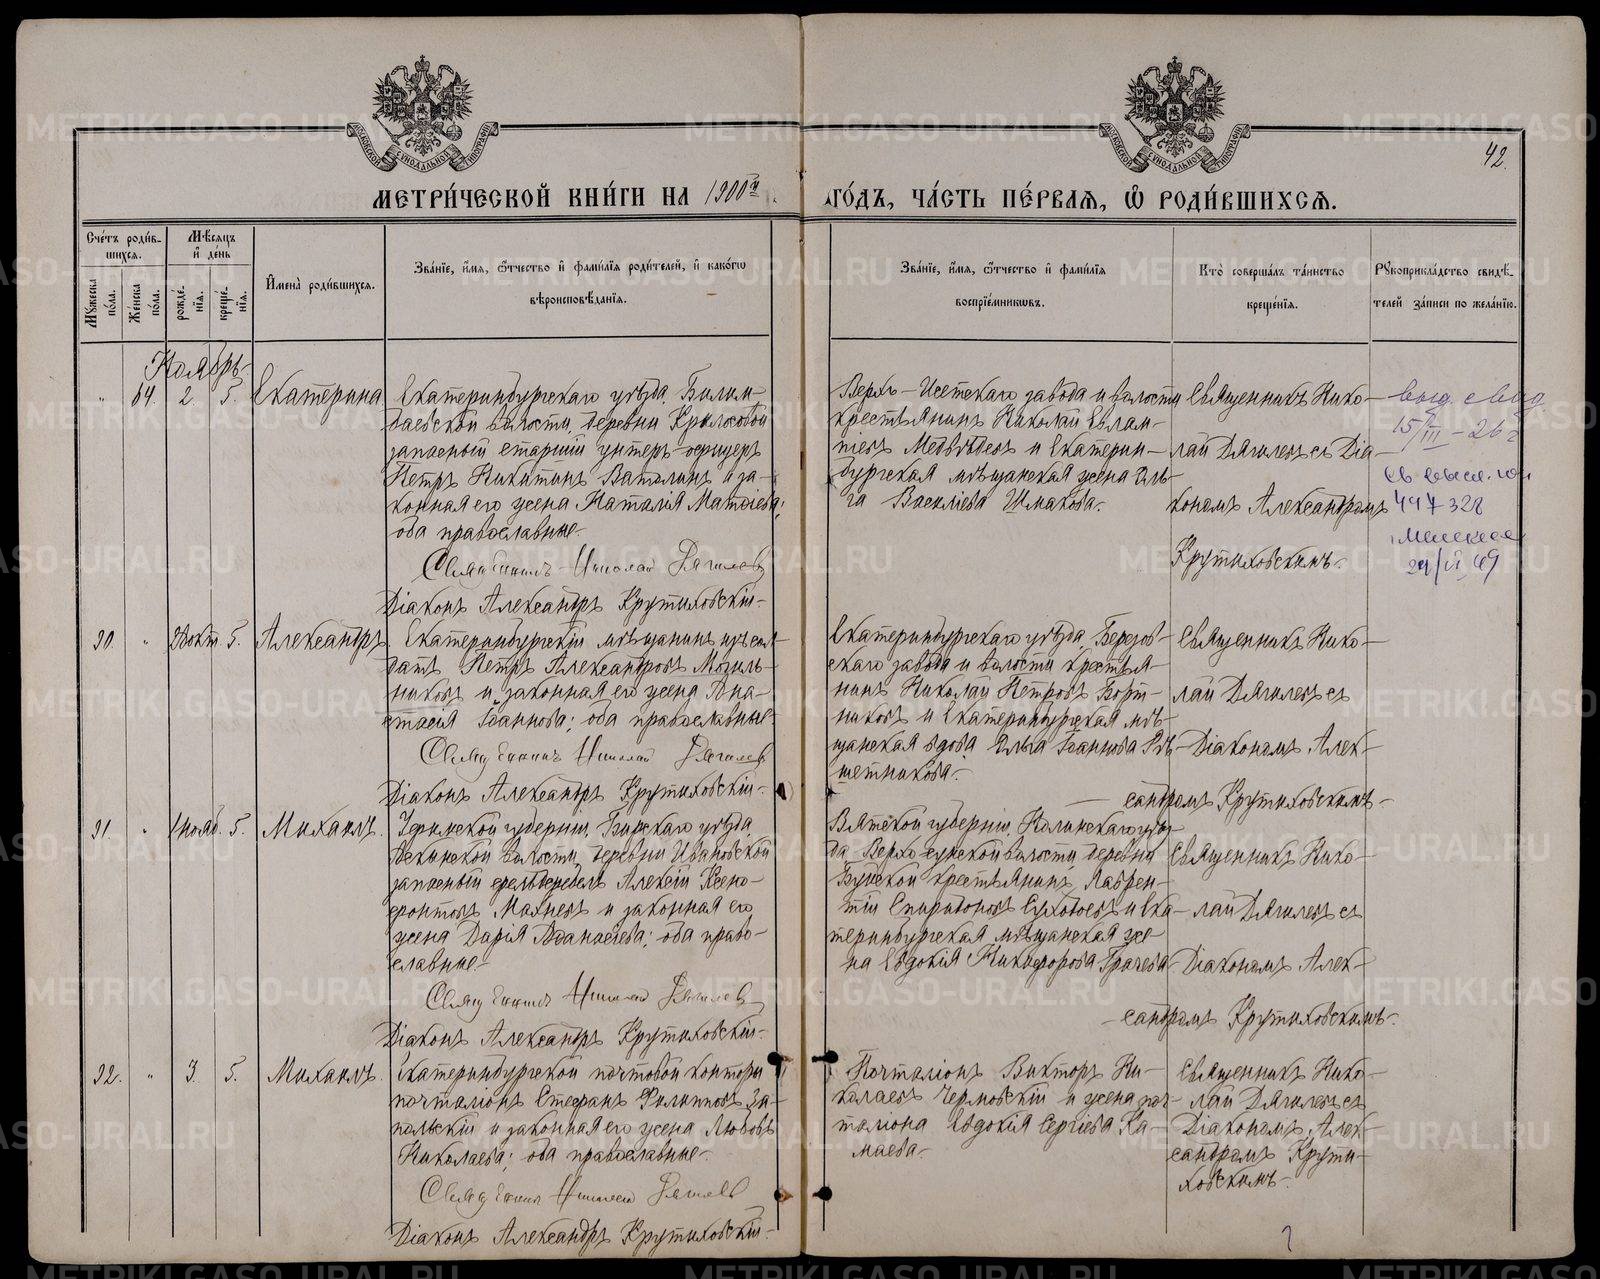 МОСКОВСКОЙ СѴНОДАЛЬНОЙ ТИПОГРАФІИ
МОСКОВСКОЙ СѴНОДАЛЬНОЙ ТИПОГРАФІИ
42.
МЕТРИ́ЧЕСКОЙ КНИ́ГИ НА 1900й ГО́ДЪ, ЧА́СТЬ ПЕ́РВАѦ, Ѽ РОДИ́ВШИХСѦ.
Сче́тъ роди́в-
шихся.
Мꙋ́жеска по́ла.
Же́нска по́ла.
Мѣ́сяцъ
и҆ де́нь
рожде́нїя.
креще́нїя.
И҆мена̀ роди́вшихся.
Зва́нїе, и҆́мя, ѻ҆́тчество и҆ фами́лїя роди́телей, и҆ како́гѡ
вѣроисповѣ́данїя.
Зва́нїе, и҆́мя, ѻ҆́тчество и҆ фами́лїя
воспрїе́мникѡвъ.
Кто̀ соверша́лъ та́инство
креще́нїя.
Рꙋкоприкла́дство свидѣ́-
телей за́писи по жела́нїю.
Ноябрь
" 64. 2. 5. Екатерина
Екатеринбургскаго уѣзда, Билим-
баевской волости, деревни Крылосовой
запасный старшій унтеръ-офицеръ
Петръ Никитинъ Ватолинъ и за-
конная его жена Наталія Матѳіева;
оба православные.
Священникъ Николай Дягилевъ
Діаконъ Александръ Крутиховскій.
Верхъ-Исетскаго завода и волости
крестьянинъ Николай Евлам-
піевъ Медвѣдевъ и Екатерин-
бургская мѣщанская жена Оль-
га Васильева Шмакова.
Священникъ Нико-
лай Дягилевъ съ Діа-
кономъ Александромъ
Крутиховскимъ.
15/III-26 г
447328
90. " 5. Александръ.
Екатеринбургскій мѣщанинъ изъ сол-
датъ Петръ Александровъ Мозуль-
никовъ и законная его жена Ана-
стасія Іоаннова; оба православные.
Священникъ Николай Дягилевъ
Діаконъ Александръ Крутиховскій.
Екатеринбургскаго уѣзда, Березов-
скаго завода и волости крестья-
нинъ Николай Петровъ Борт-
никовъ и Екатеринбургская мѣ-
щанская вдова Ольга Іоаннова Рѣ-
шетникова.
Священникъ Нико-
лай Дягилевъ съ
Діакономъ Алек-
сандромъ Крутиховскимъ.
91. " 1 нояб. 5. Михаилъ.
Уфимской губерніи, Бирскаго уѣзда,
волости, деревни Ивановской
запасный фельдфебель Алексій Ксено-
фонтовъ Махневъ и законная его
жена Дарія Аѳанасіева; оба право-
славные.
Священникъ Николай Дягилевъ
Діаконъ Александръ Крутиховскій.
Вятской губерніи, Нолинскаго уѣз-
да, Верхо-сунской волости, деревни
крестьянинъ, Лаврен-
тій Спиридоновъ Суховоевъ и Ека-
теринбургская мѣщанская же-
на Евдокія Никифорова Грачева.
Священникъ Нико-
лай Дягилевъ съ
Діакономъ Алек-
сандромъ Крутиховскимъ.
92. " 3. 5. Михаилъ.
Екатеринбургской почтовой конторы
почталіонъ Стефанъ Филипповъ За-
польскій и законная его жена Любовь
Николаева; оба православные.
Священникъ Николай Дягилевъ
Діаконъ Александръ Крутиховскій.
Почталіонъ Викторъ Ни-
колаевъ Чермовскій и жена поч-
таліона Евдокія Сергіева Ка-
маева.
Священникъ Нико-
лай Дягилевъ съ
Діакономъ Алек-
сандромъ Крути-
ховскимъ.
METRIKI.GASO-URAL.RU